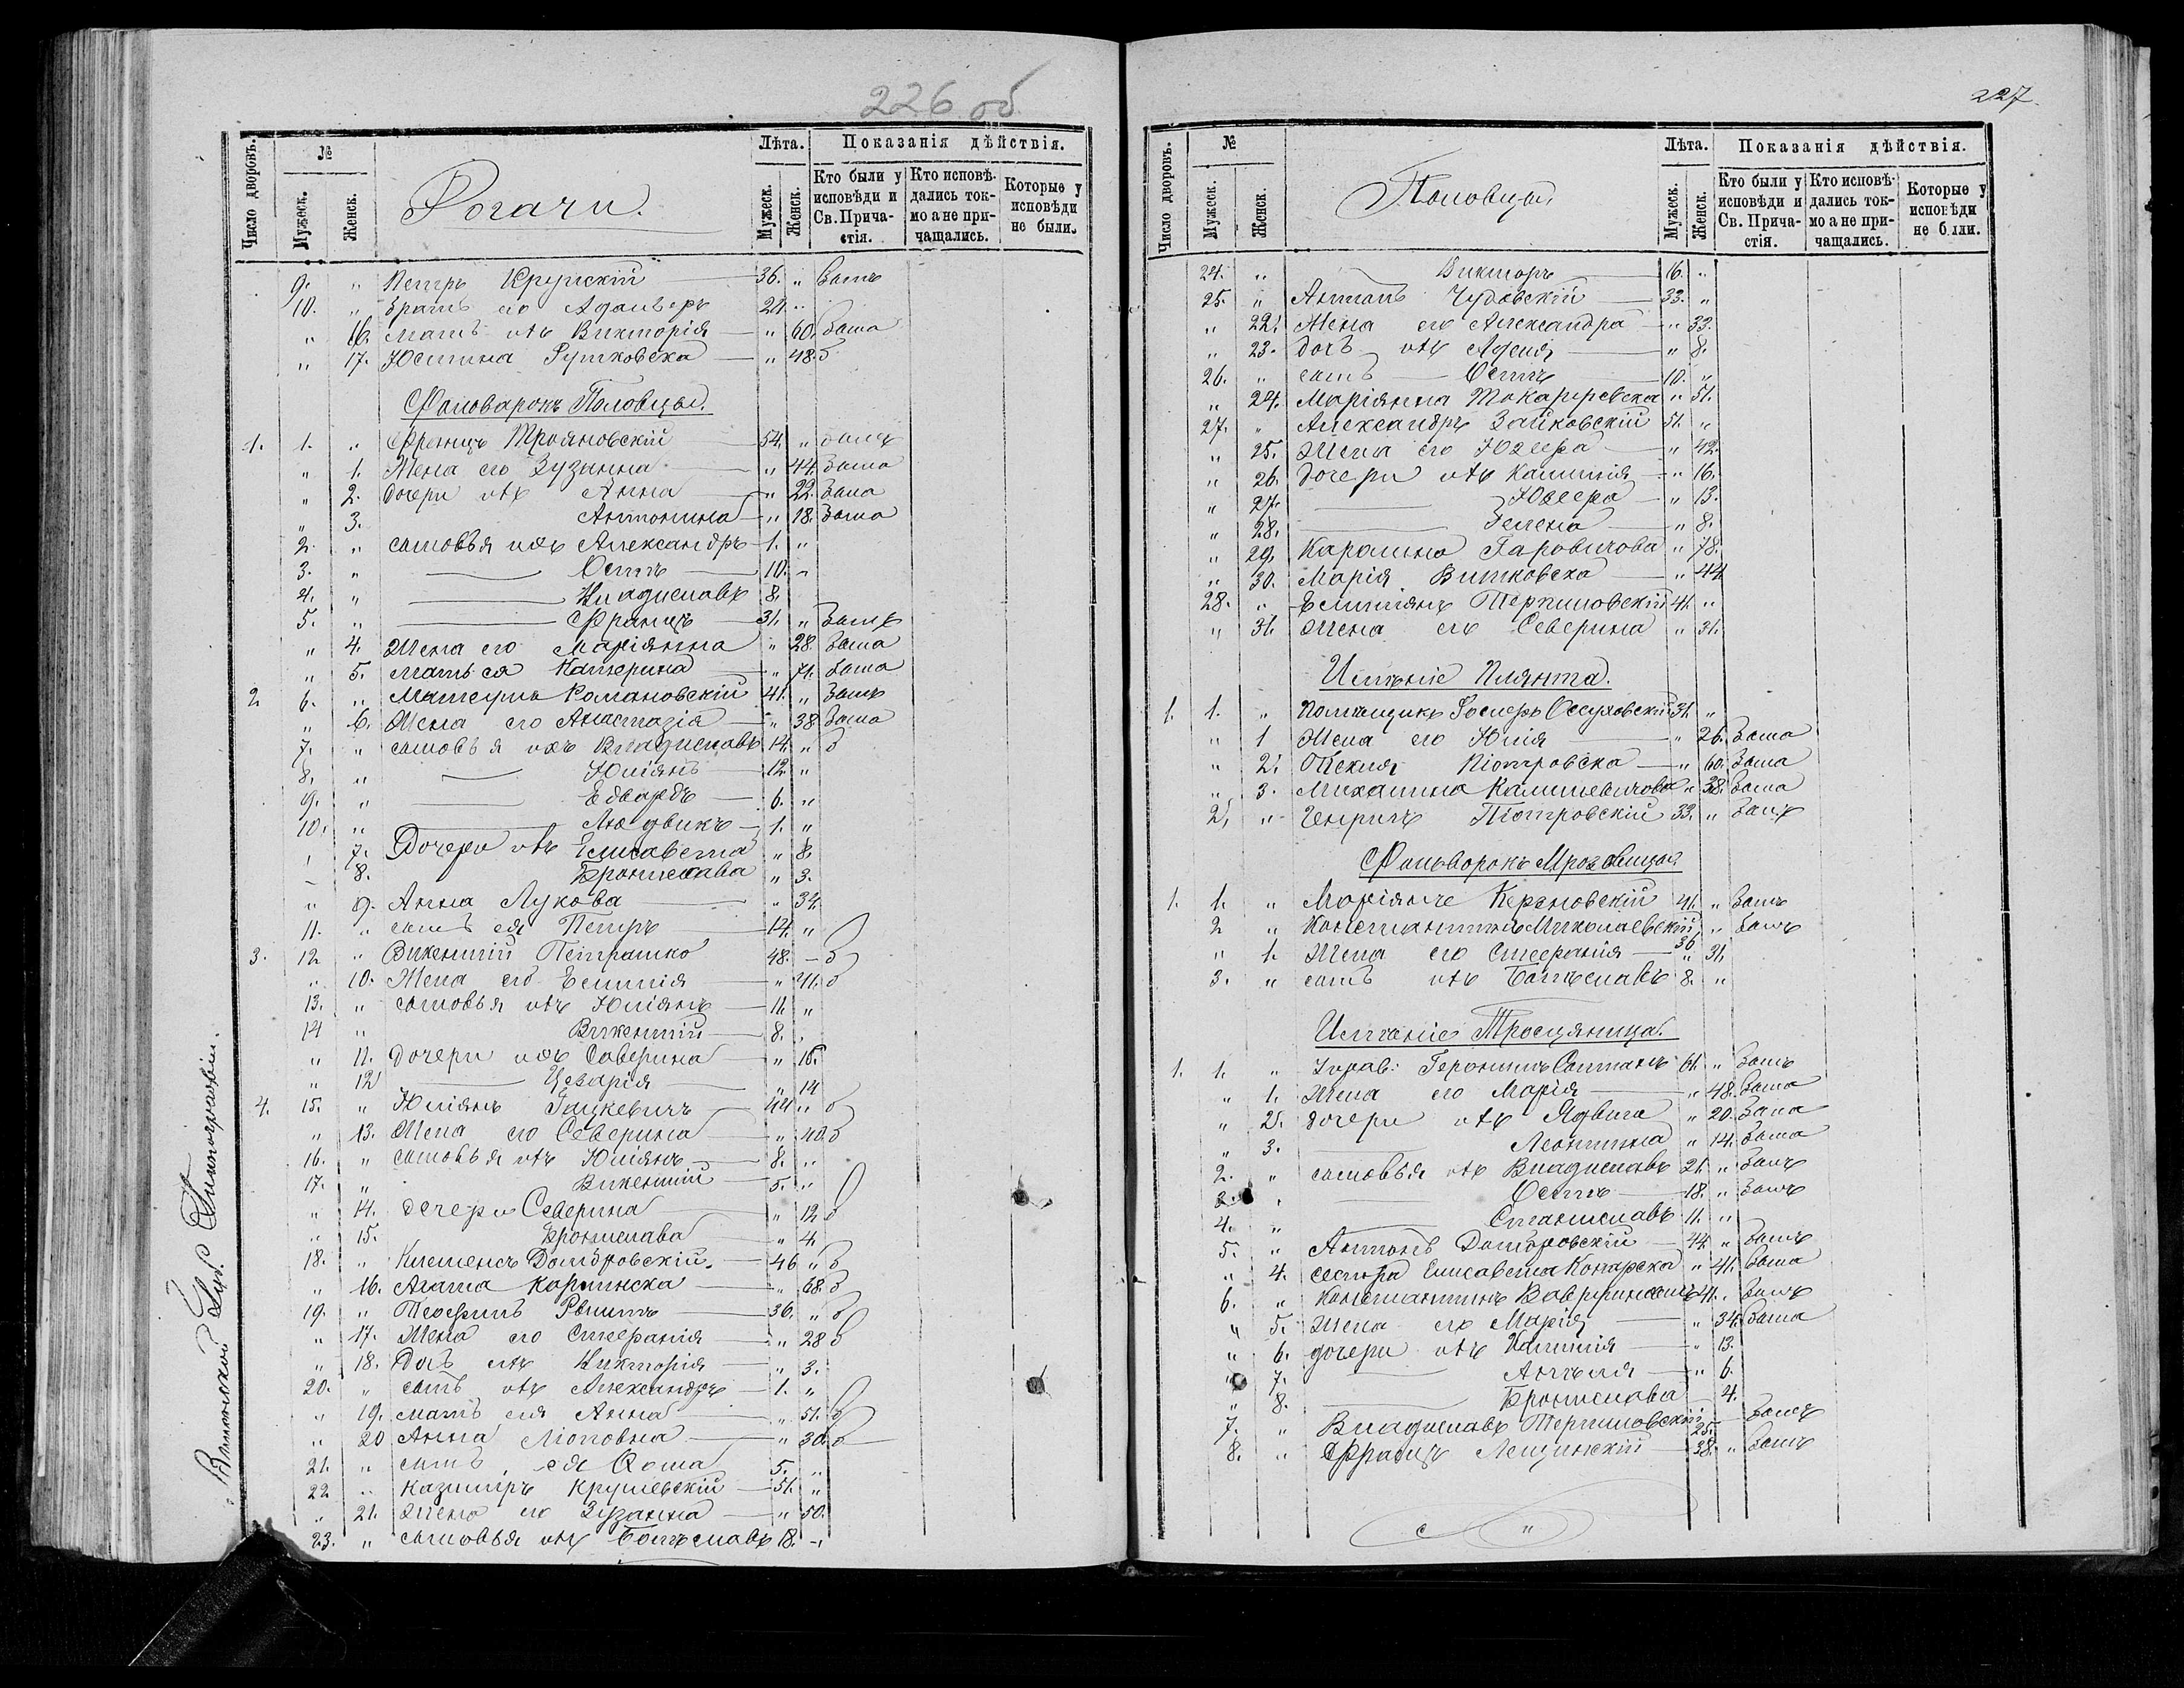 226 об
Число дворовъ.
№
Мужеск. Женск.
Рогачи.
Лѣта.
Мужеск. Женск.
Показанія дѣйствія.
Кто были у исповѣди и Св. Прича-стія.
Кто исповѣ-дались ток-мо а не при-чащались.
Которые у исповѣди не были.
9. " Петръ Крупскій 36. " былъ
10. " Братъ его Адольфъ 24 "
" 16. мать ихъ Викторія " 60. была
" 17. Юстина Рутковска " 48. б
Фольварокъ Половцы.
1. 1. " Францъ Трояновскій 54. " былъ
" 1. Жена его Зузанна " 44. была
" 2. дочери ихъ Анна " 22. была
" 3. Антонина " 18. была
2. " сыновья ихъ Александръ 1. "
3. " Осипъ 10. "
4. " Владиславъ 8.
5. " Францъ 31. " былъ
" 4. Жена его Маріянна " 28. была
" 5. мать ея Катерина " 71. была
2 6. " Матеушъ Романовскій 41. " былъ
" 6. Жена его Анастазія " 38. была
7. " сыновья ихъ Владиславъ 14. " б
8. " Юліянъ 12 "
9. " Едвардъ 6. "
10. " Людвикъ 1. "
" 7. Дочери ихъ Елисавета " 8.
" 8. Бронислава " 3.
" 9. Анна Лукова " 34.
11. " сынъ ея Петръ 14. "
3. 12 " Викентій Петрашко 48. " б
" 10. Жена его Емилія " 41. б
13. " сыновья ихъ Юліянъ 11. "
14 " Викентій 8. "
" 11. дочери ихъ Саверина " 16.
" 12 Цезарія " 14
4. 15. " Юліянъ Гацкевичъ 44 " б
" 13. Жена его Северина " 40. б
16. " сыновья ихъ Юліянъ 8. "
17. " Викентій 5. "
" 14. дочери Северина " 12 б
" 15. Бронислава " 4.
18. " Клеменсъ Домбровскій 46 " б
" 16. Агата " 68. б
19. " Теофилъ 36. " б
" 17. Жена его Стефанія " 28 б
" 18. Дочь ихъ Викторія " 3.
20. " сынъ ихъ Александръ 1. "
" 19. мать ея Анна " 51. б
" 20 Анна " 30. б
21. " сынъ ея Ѳома 5. "
22 " Казиміръ Крушевскій 51. "
" 21. Жена его Зузанна " 50.
23. " сыновья ихъ Болеславъ 18. "
Виленской Губ. Типографіи.
227.
Число дворовъ.
№
Мужеск. Женск.
Половцы.
Лѣта.
Мужеск. Женск.
Показанія дѣйствія.
Кто были у исповѣди и Св. Прича-стія.
Кто исповѣ-дались ток-мо а не при-чащались.
Которые у исповѣди не были.
24. " Викторъ 16. "
25. " Антонъ Чудовскій 33. "
" 22. Жена его Александра " 33.
" 23. дочь ихъ " 8.
26. " сынъ Осипъ 10. "
" 24. Маріянна Токаржевска " 51.
27. " Александръ Зайковскій 51. "
" 25. Жена его Юзефа " 42.
" 26. дочери ихъ Камилія " 16.
" 27. Юзефа " 13.
" 28. Гелена " 8.
" 29. Каролина " 78.
" 30. Марія Витковска " 44
28. " Емиліянъ 41. "
" 31. Жена его Северина " 31.
Имѣніе Плянта.
1. 1. " Помѣщикъ Осуховскій 31. "
" 1 Жена его Юлія " 26. была
" 2. Піотровска " 60. была
" 3. Михалина " 38. была
2. " Генрихъ Піотровскій 33. " былъ
Фольварокъ
1. 1. " Маріянъ 41. " былъ
2 " Константинъ Миколаевскій 36 " былъ
" 1. Жена его Стефанія " 31.
3. " сынъ ихъ Болеславъ 8. "
Имѣніе Тросцяница.
1. 1. " Управ: Геронимъ Солтанъ 61. " былъ
" 1. Жена его Марія " 48. была
" 2. дочери ихъ Ядвига " 20. была
" 3. Леонтина " 14. была
2. " сыновья ихъ Владиславъ 21. " былъ
3. " Осипъ 18. " былъ
4. " Станиславъ 11. "
5. " Антонъ Домбровскій 44 " былъ
" 4. сестра Елисавета Конарска " 41. была
6. " Константинъ 41. " былъ
" 5. Жена его Марія " 34. была
" 6. дочери ихъ Камилія " 13.
" 7. Анѣеля " 6.
" 8. Бронислава " 4.
7. " Владиславъ 25. " былъ
8. " Францъ Лещинскій 38. " былъ